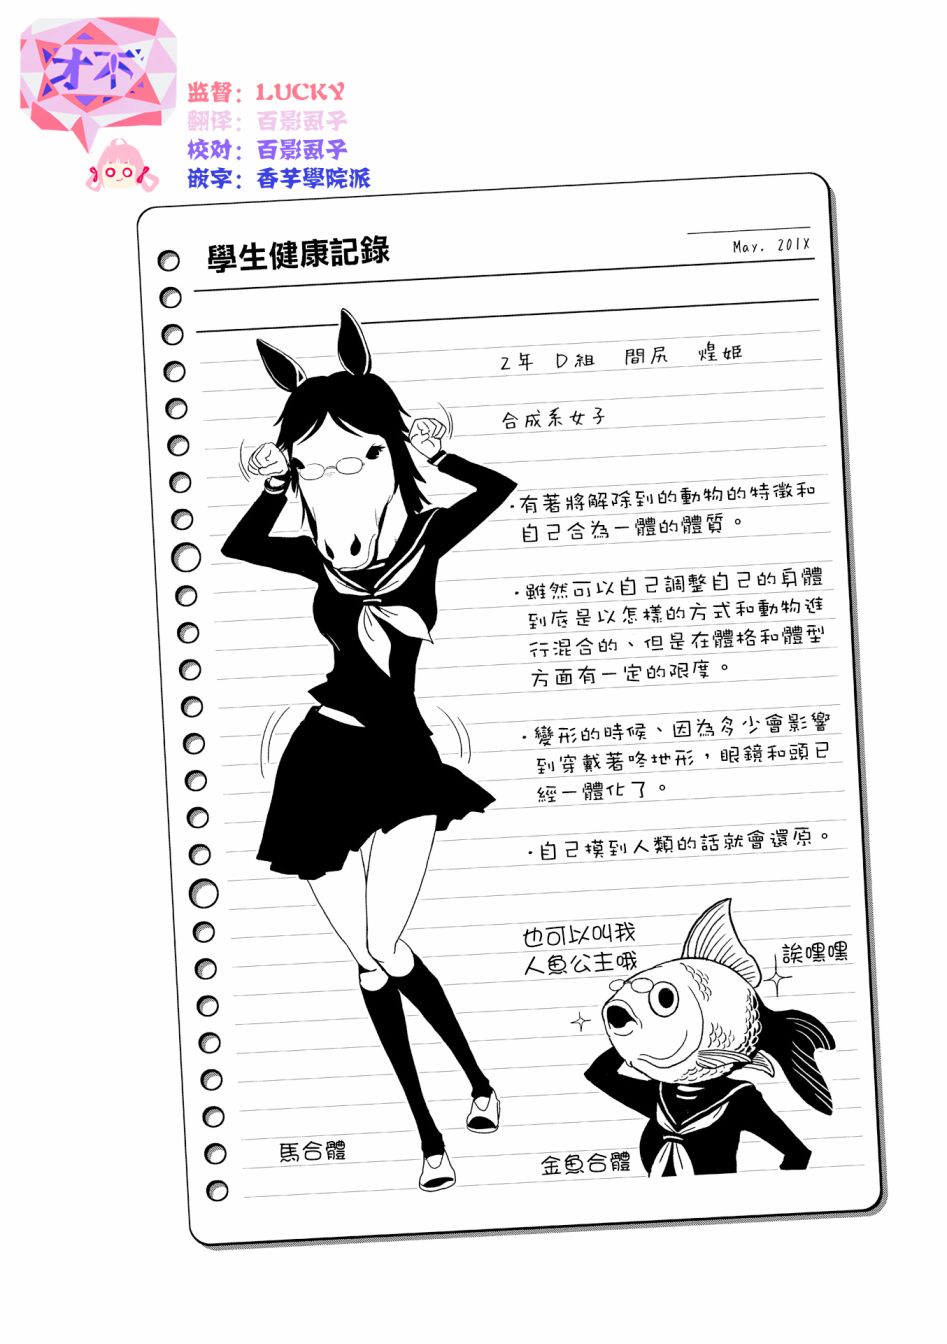 才不
监督：LUCKY
翻译：百影虱子
校对：百影虱子
嵌字：香芋學院派
學生健康記錄
May. 201X
2年 D組 間尻 煌姫
合成系女子
·有著將解除到的動物的特徵和
自己合為一體的體質。
·雖然可以自己調整自己的身體
到底是以怎樣的方式和動物進
行混合的、但是在體格和體型
方面有一定的限度。
·變形的時候、因為多少會影響
到穿戴著咚地形，眼鏡和頭已
經一體化了。
·自己摸到人類的話就會還原。
也可以叫我
人魚公主哦
誒嘿嘿
馬合體
金魚合體